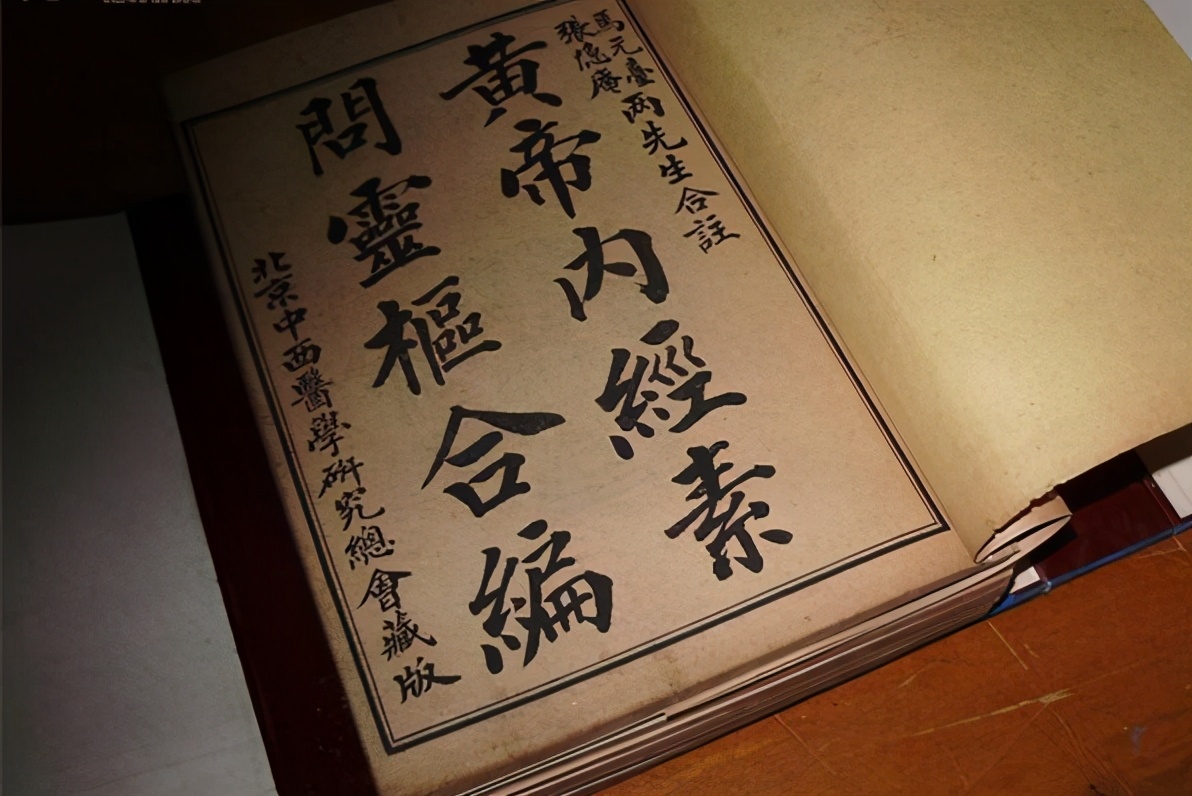 馬元臺
張隱庵
兩先生合註
黃帝內經素
問靈樞合編
北京中西醫學研究總會藏版